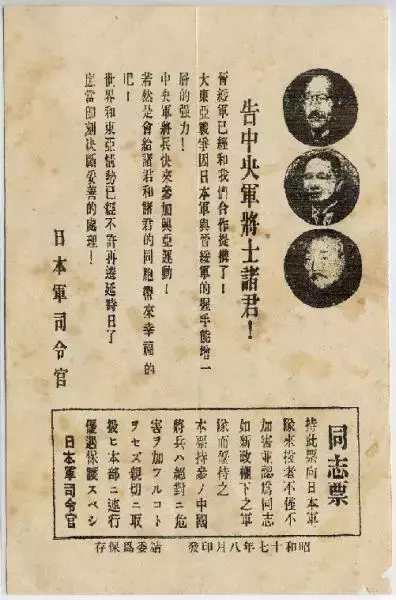 告中央軍將士諸君！
晉綏軍已經和我們合作提攜了！
大東亞戰爭因日本軍與晉綏軍的握手能增一
層的強力！
中央軍將兵快來參加興亞運動！
若然是會給諸君和諸君的同胞帶來幸福的
吧！
世界和東亞情勢已經不許再遷延時日了
應當即刻決斷妥善的處理！
日本軍司令官
同志票
持此票向日本軍
隊來投者不僅不
加害並認爲同志
如新政權下之軍
隊而優待之
本票持參ノ中國
將兵ハ絕對ニ危
害ヲ加フルコト
ヲセズ親切ニ取
扱ヒ本部ニ連行
優遇保護スベシ
日本軍司令官
昭和十七年八月印發
請妥爲保存